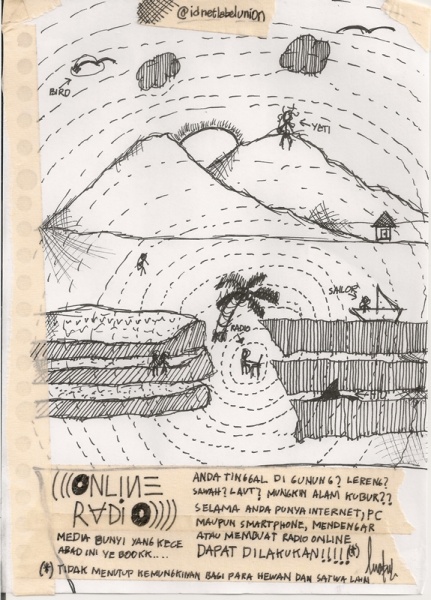 @idnetlabelunion
BIRD
YETI
SAILOR
RADIO
(((ONLINE
RADIO))))
MEDIA BUNYI YANG KECE
ABAD INI YE BOOKK....
ANDA TINGGAL DI GUNUNG? LERENG?
SAWAH? LAUT? MUNGKIN ALAM KUBUR??
SELAMA ANDA PUNYA INTERNET, PC
MAUPUN SMARTPHONE, MENDENGAR
ATAU MEMBUAT RADIO ONLINE
DAPAT DILAKUKAN!!!!!(*)
(*) TIDAK MENUTUP KEMUNGKINAN BAGI PARA HEWAN DAN SATWA LAIN